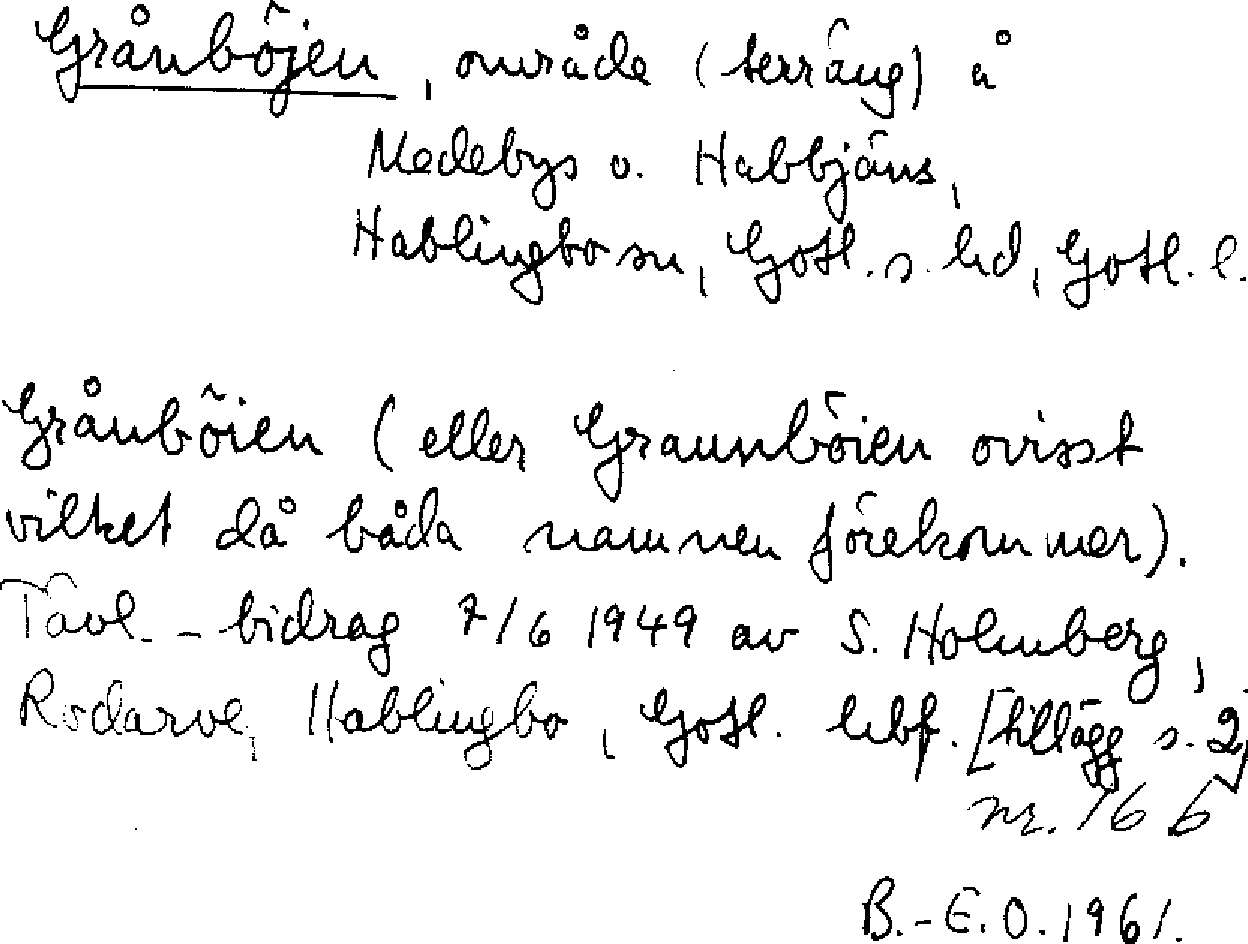 Grånböjen, område (terräng) å
Medebys o. Habbjäns,
Hablingbo sn, Gotl. s. hd, Gotl. l.
Grånböien (eller Graunböien ovisst
vilket då båda namnen förekommer).
Tävl. - bidrag 7/6 1949 av S. Holmberg,
Rodarve, Hablingbo, Gotl. hbf. [tillägg s. 2,
nr. 16 b]
B.-E.O. 1961.